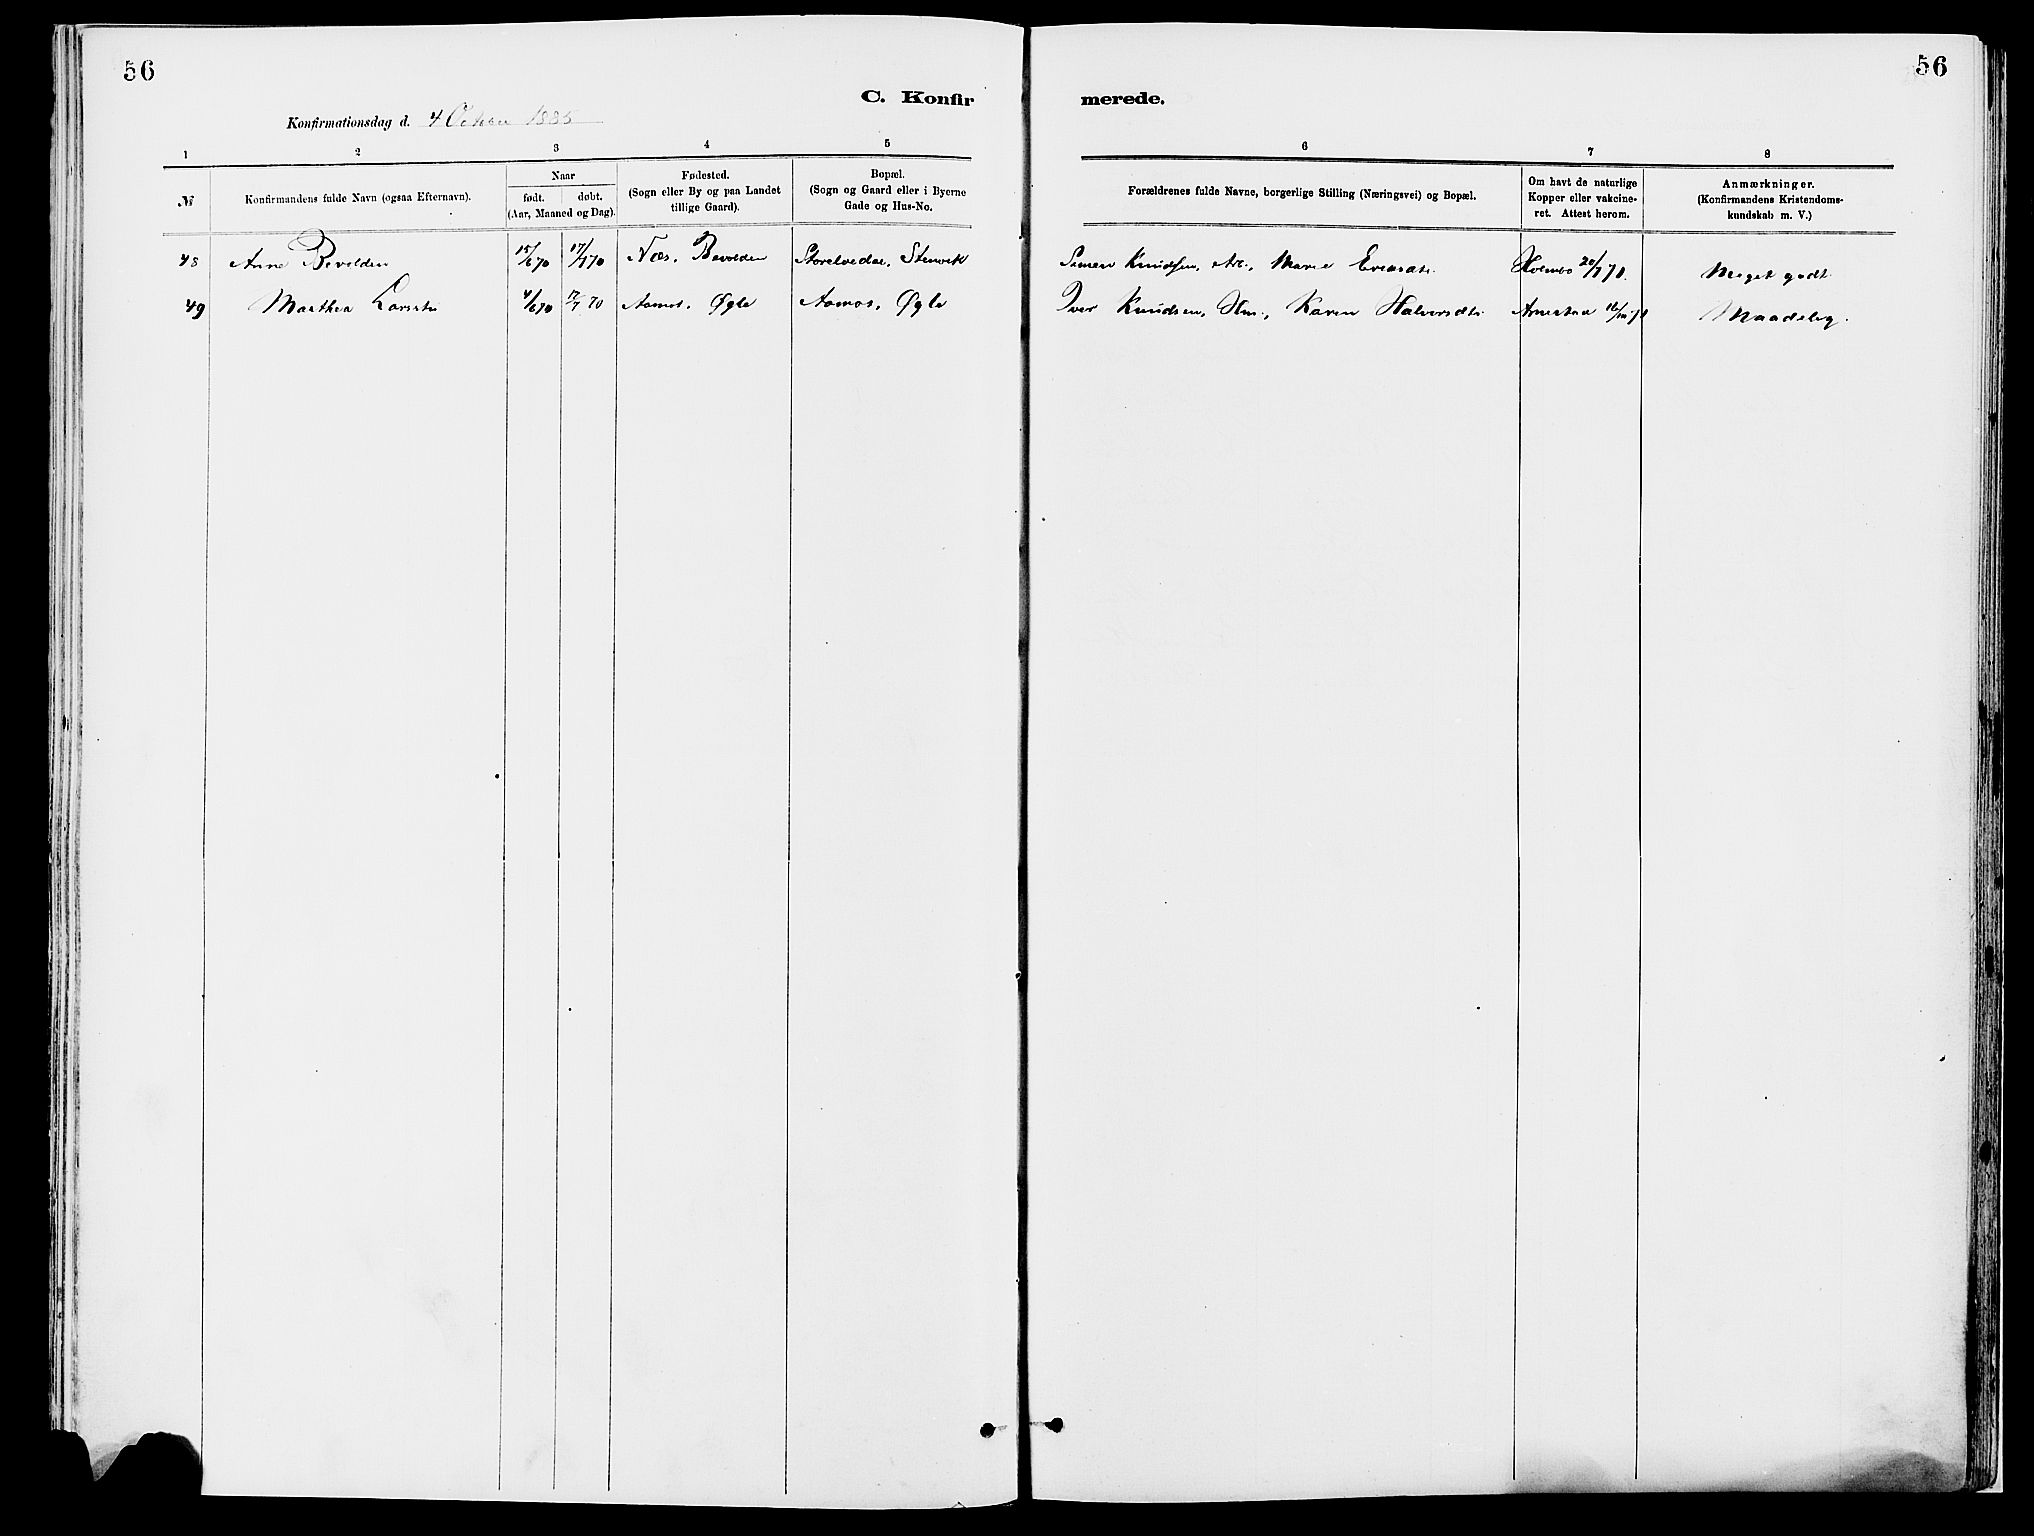 56
56
C. Konfir
merede.
Konfirmationsdag d. 4 October 1885
1 2 3 4 5
6 7 8
№
Konfirmandens fulde Navn (ogsaa Efternavn).
Naar
født. døbt.
(Aar, Maaned og Dag).
Fødested.
(Sogn eller By og paa Landet
tillige Gaard).
Bopæl.
(Sogn og Gaard eller i Byerne
Gade og Hus-No.
Forældrenes fulde Navne, borgerlige Stilling (Næringsvei) og Bopæl.
Om havt de naturlige
Kopper eller vakcine-
ret. Attest herom.
Anmærkninger.
(Konfirmandens Kristendoms-
kundskab m. V.)
48 Anne Bevolden 15/6 70 17/7 70 Næs, Bevolden Storelvedal, Stenvik Simen Knudsen, Arb., Marie Holmbo 20/7 70. Meget godt.
49 Marthea Larsstu 4/6 70 17/7 70 Aamot, Øgle Aamot, Øgle Iver Knudsen, Hm., Karen Halvorsdtr. Maadelig.